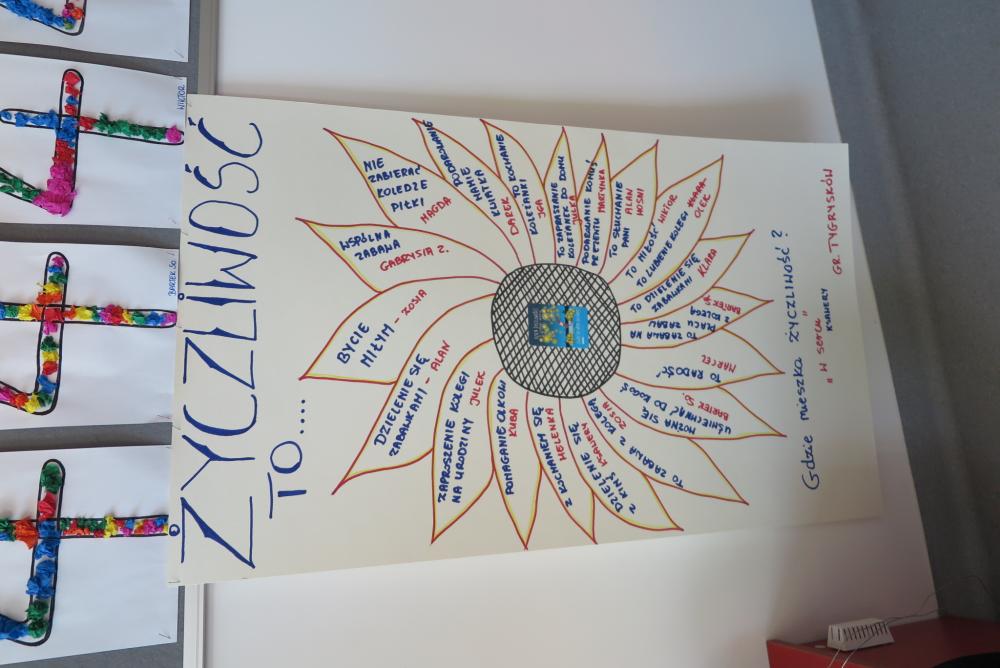 WIKTOR
BARTEK SO.
ŻYCZLIWOŚĆ
TO.....
NIE
ZABIERAĆ
KOLEDZE
PIŁKI
MAGDA
PODAROWANIE
MAMIE
KWIATKA
DAREK
TO KOCHANIE
KOLEŻANKI
IGA
TO ZAPRASZANIE
KOLEŻANEK DO DOMU
JULKA
PODAROWANIE KOMUŚ
PREZENTU MARTYNKA
TO SŁUCHANIE
PANI ALAN
TO MIŁOŚĆ WIKTOR
TO LUBIENIE KOLEGI
OLEK
TO DZIELENIE SIĘ
ZABAWKAMI KLARA
TO ZABAWA NA
PLACU ZABAW
Z KOLEGĄ
BARTEK
TO RADOŚĆ-
MARCEL
MOŻNA SIĘ
UŚMIECHNĄĆ DO KOGOŚ
BARTEK SO.
TO ZABAWA Z KOLEGĄ
ZOSIA
DZIELENIE SIĘ
Z KIMŚ KSAWERY
Z KOCHANIEM SIĘ
HELENKA
POMAGANIE
KUBA
ZAPROSZENIE KOLEGI
NA URODZINY JULEK
DZIELENIE SIĘ
ZABAWKAMI - ALAN
BYCIE
MIŁYM - ZOSIA
WSPÓLNA
ZABAWA
GABRYSIA Z.
Gdzie mieszka ŻYCZLIWOŚĆ?
"W sercu"
KSAWERY
GR. TYGRYSKÓW